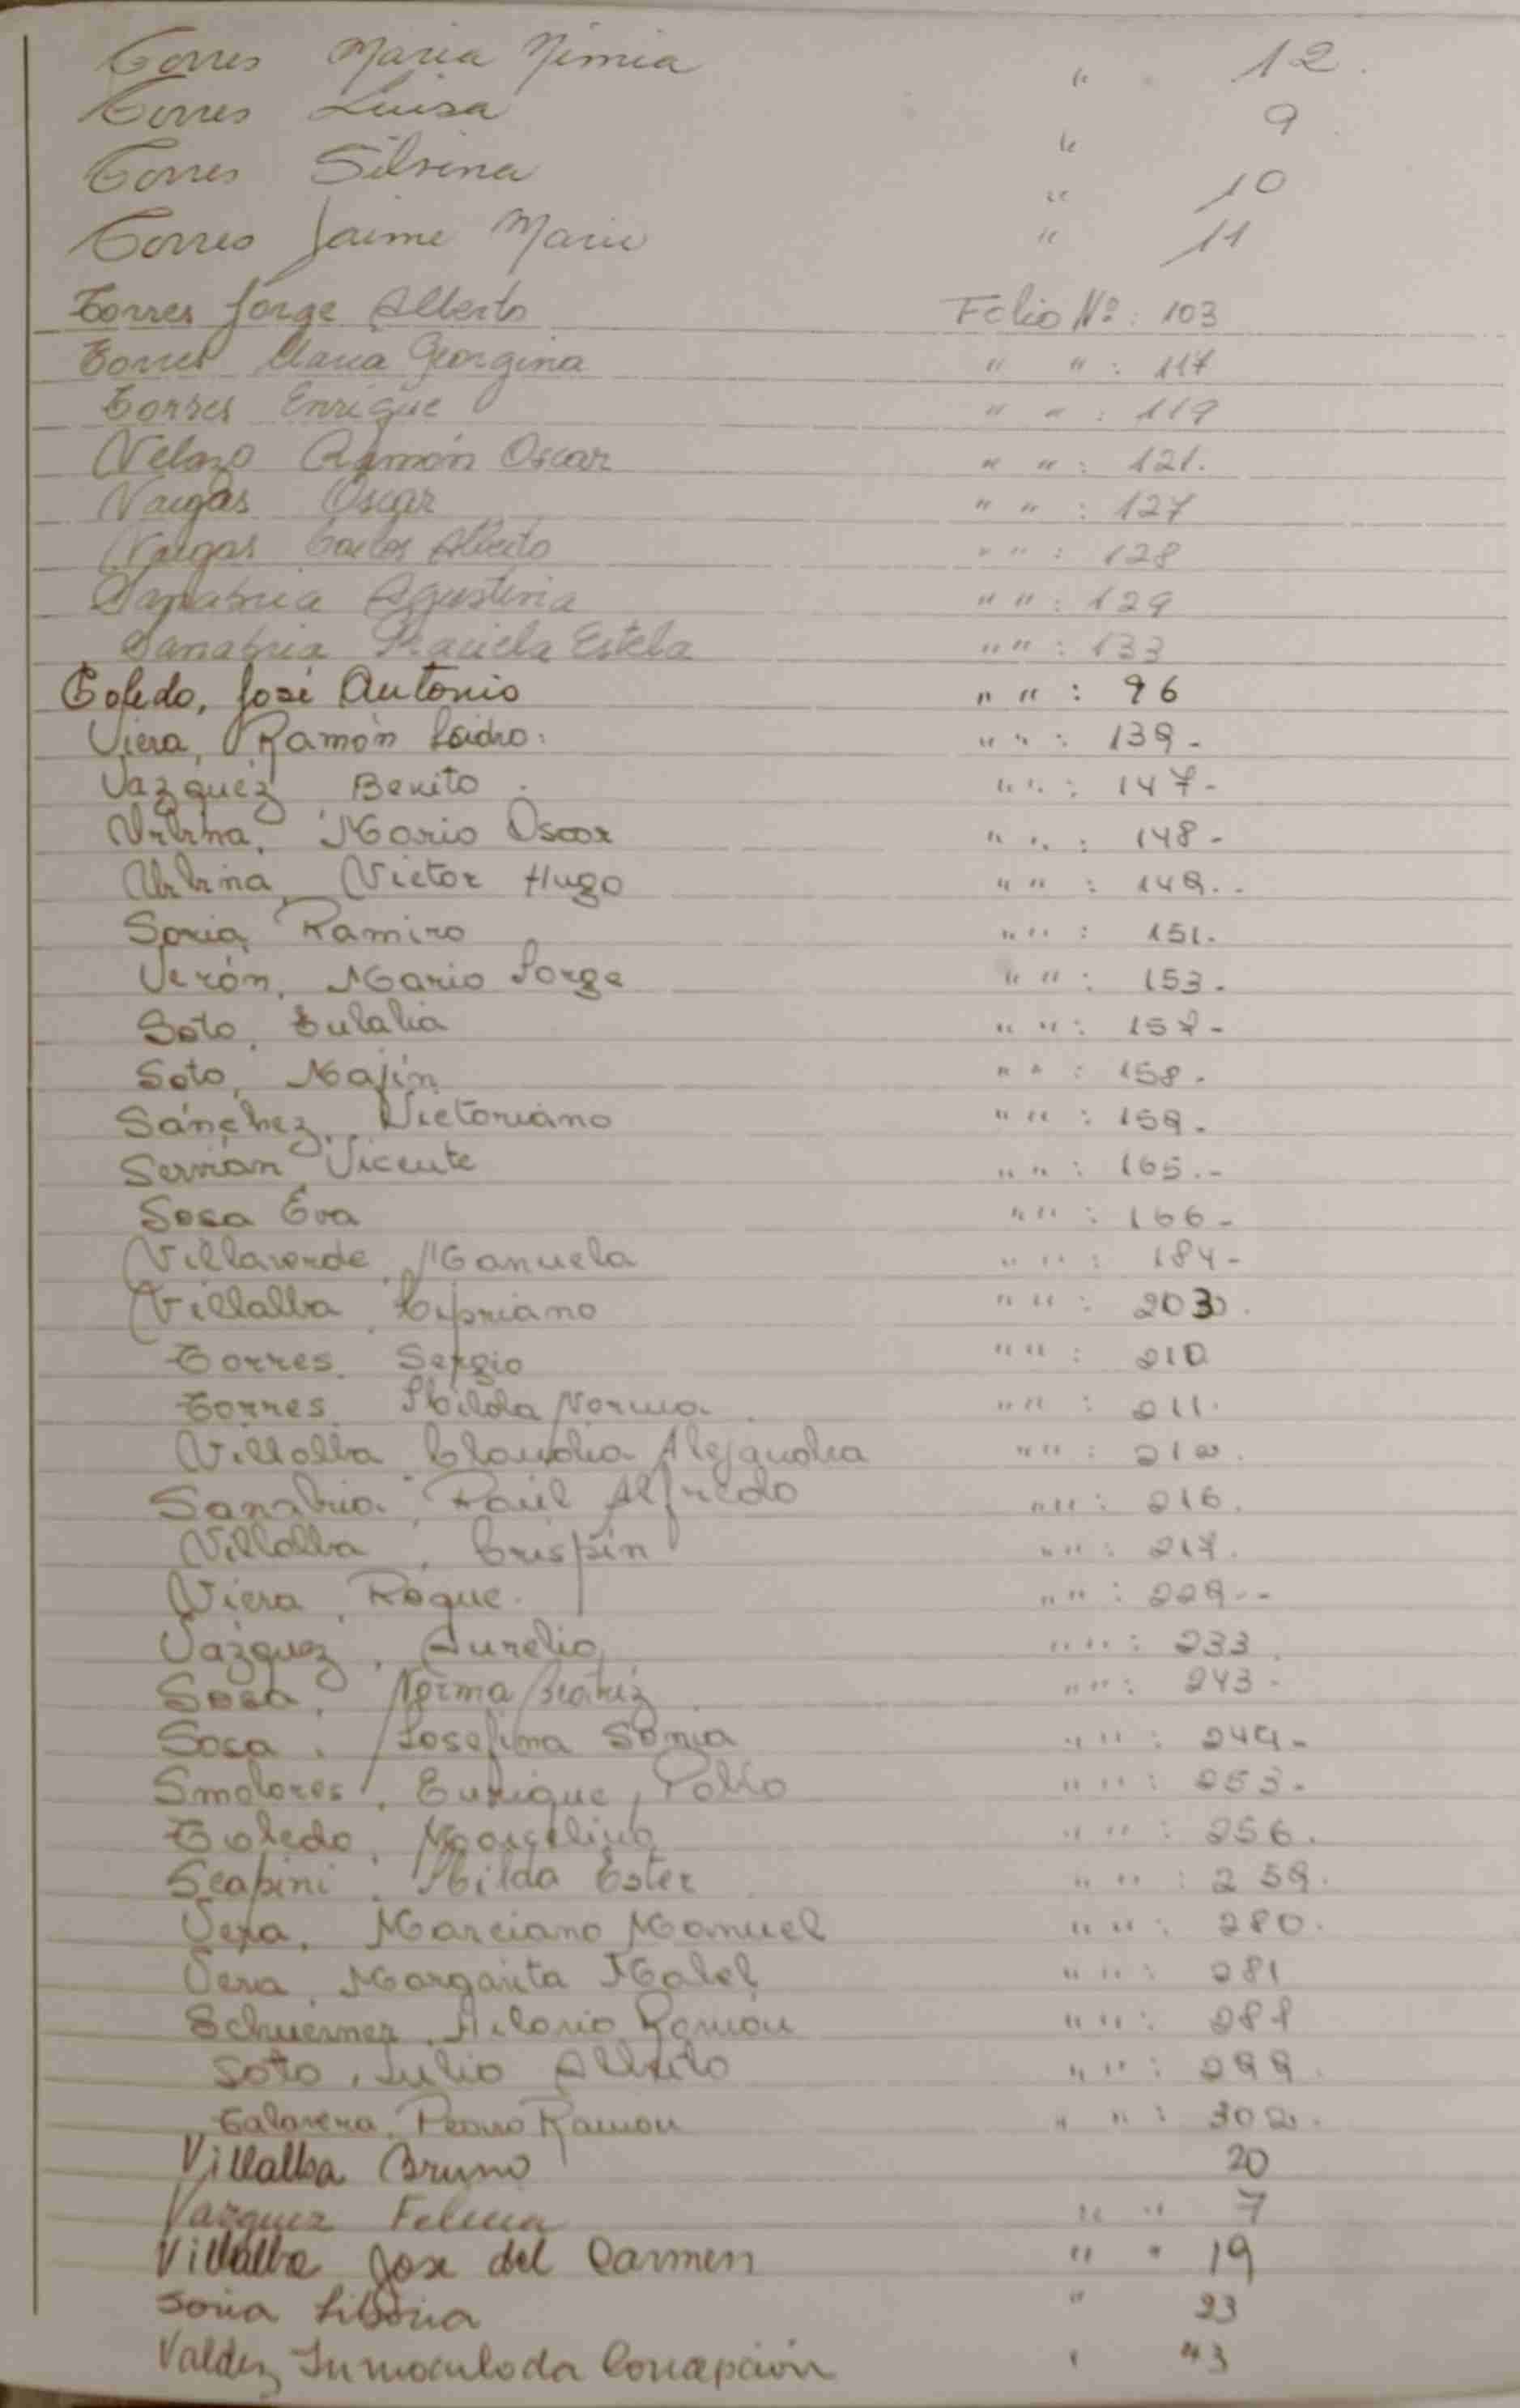 Torres Maria Nimia " 12.
Torres Luisa " 9
Torres Silvina " 10
Torres Jaime Mario " 11
Torres Jorge Alberto Folio Nº: 103
Torres Maria Georgina " " : 117
Torres Enrique " " : 119
Velazo Ramón Oscar " " : 121.
Vargas Oscar " " : 127
Vargas Carlos Alberto " " : 128
Sanabria Agustina " " : 129
Sanabria Graciela Estela " " : 133
Toledo, José Antonio " " : 96
Viera, Ramón Isidro. " " : 139-
Vazquez Benito. " " : 147-
Urbina, Mario Oscar " " : 148-
Urbina, Victor Hugo " " : 149..
Soria, Ramiro " " : 151.
Verón, Mario Jorge " " : 153.
Soto, Eulalia " " : 157-
Soto, Majín " " : 158.
Sánchez, Victoriano " " : 159.
Servían, Vicente " " : 165.-
Sosa Eva " " : 166-
Villaverde, Manuela " " : 184-
Villalba, Cipriano " " : 203.
Torres, Sergio " " : 210
Torres, Hilda Norma " " : 211.
Villalba Claudia Alejandra " " : 212.
Sanabria, Raúl Alfredo " " : 216.
Villalba, Crispín " " : 217.
Viera, Roque. " " : 229--
Vazquez, Aurelio " " : 233.
Sosa, Norma Beatriz " " : 243-
Sosa, Josefina Sonia " " : 249-
Enrique, Pablo " " : 253-
Toledo, Marcelino " " : 256.
Scapini, Hilda Ester " " : 259.
Vera, Marciano Manuel " " : 280.
Vera, Margarita Mabel " " : 281
Hilario Ramón " "
Soto, Julio Alberto " " : 299.
Talavera, Pedro Ramón " " : 302.
Villalba Bruno 20
Vazquez " " 7
Villalba Jose del Carmen " " 19
Soria Liboria " 23
Valdez Inmaculada Concepción " 43